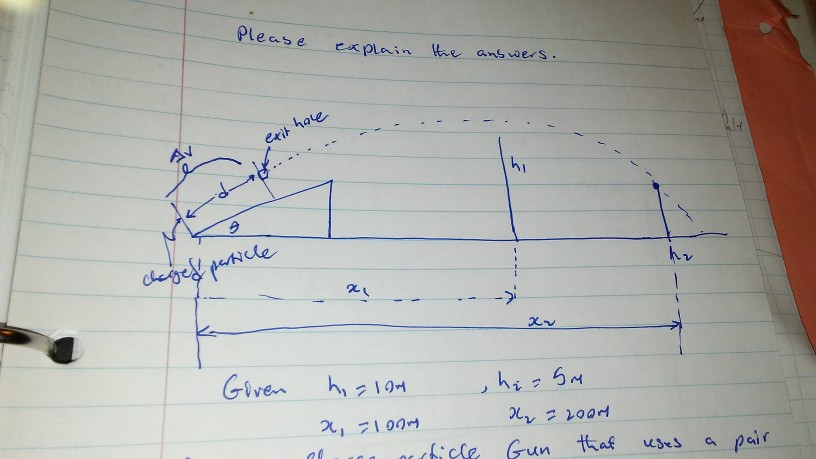 Please explain the answers.
exit hole
ΔV
d
h1
θ
charged particle
h2
x1
x2
Given h1 = 10m , h2 = 5m
x1 = 100m x2 = 200m
particle Gun that uses a pair